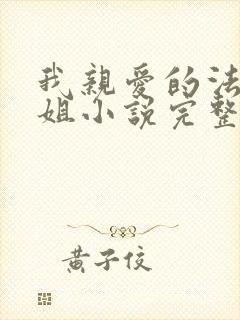 我親愛的法
姐小說完整
黃子佼